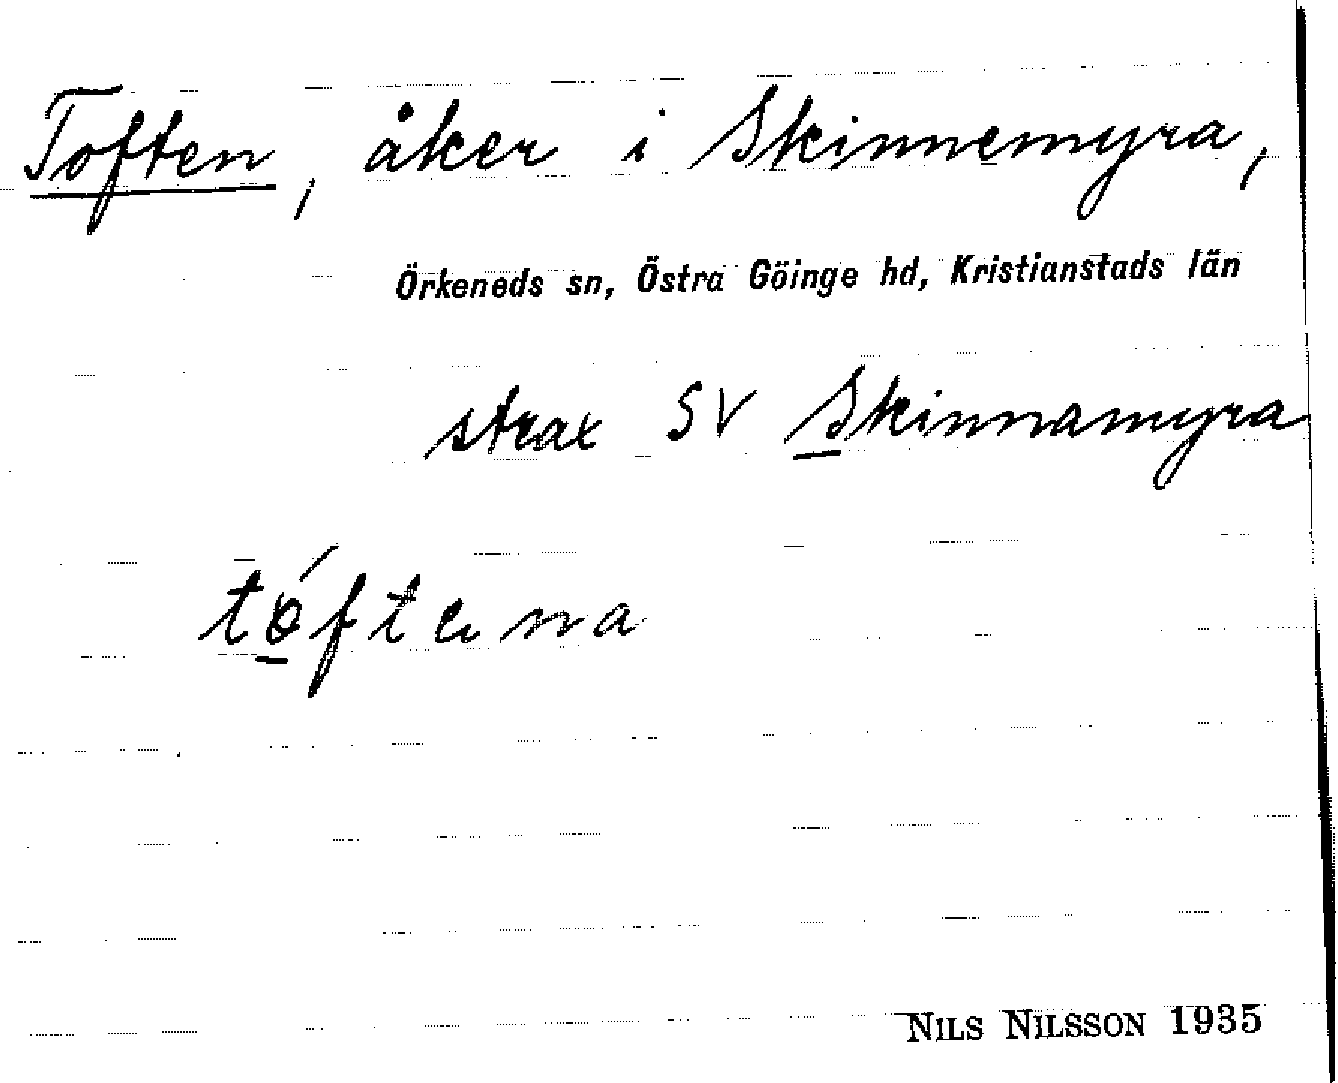 Toften, åker i Skinnemyra,
Örkeneds sn, Östra Göinge hd, Kristianstads län
strax SV Skinnamyra
tóftena
NILS NILSSON 1935